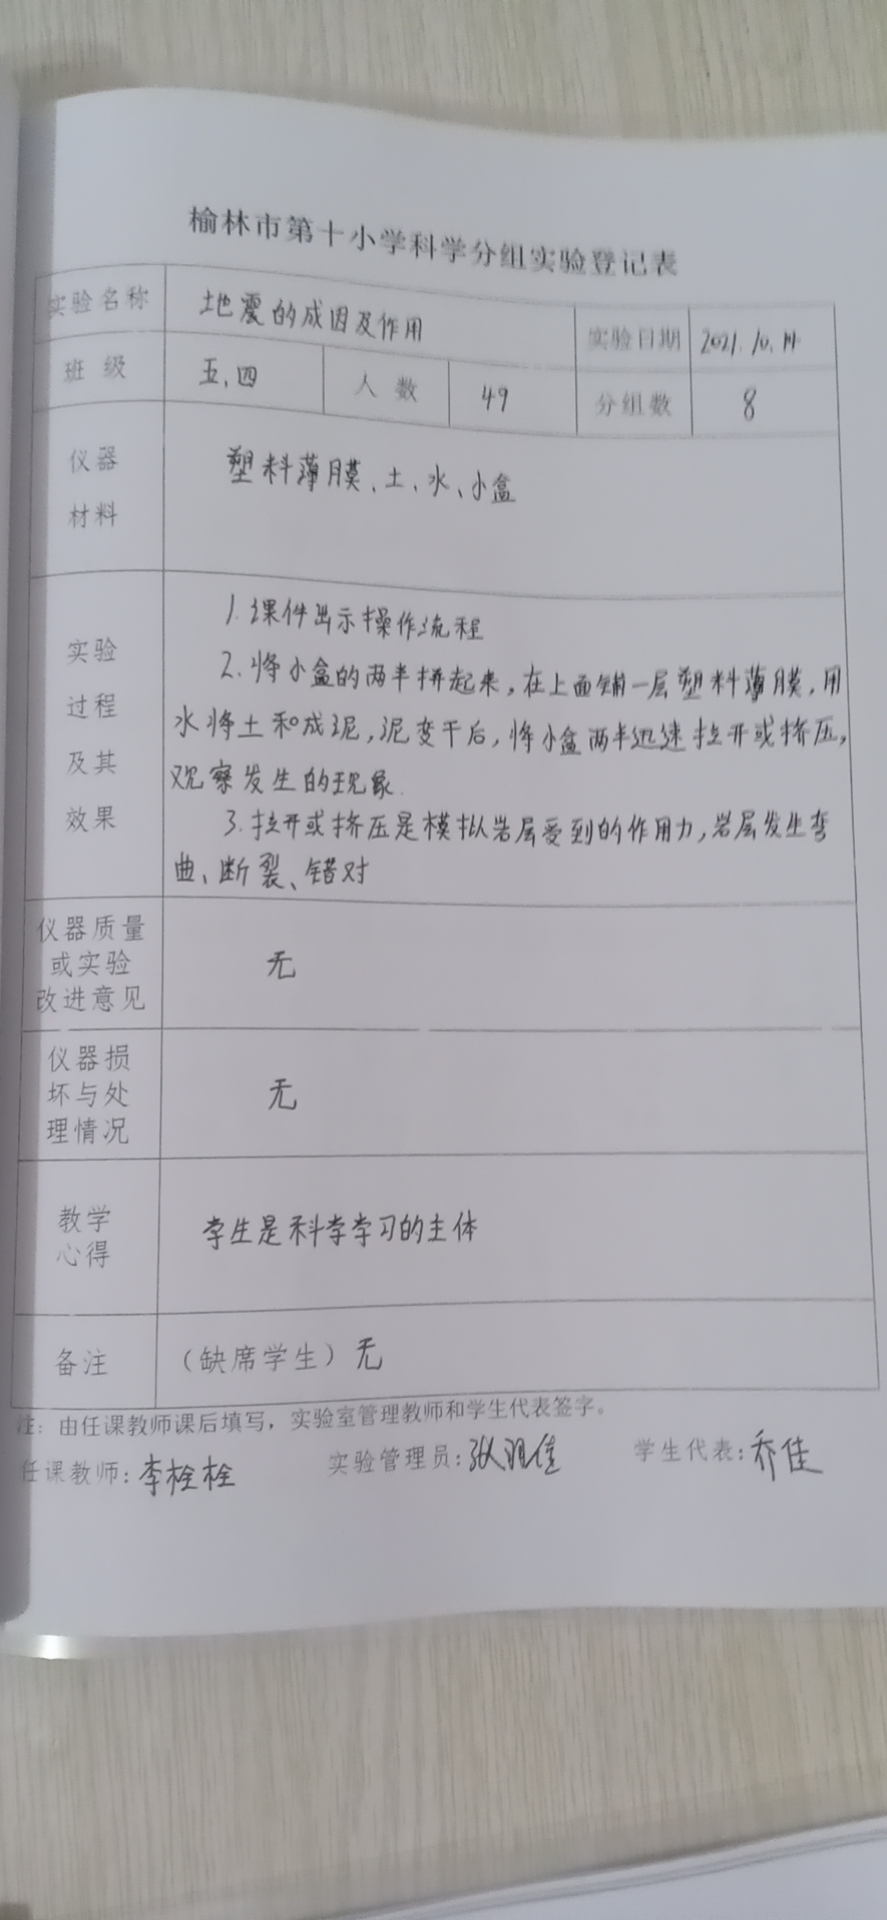 榆林市第十小学科学分组实验登记表
实验名称 地震的成因及作用 实验日期 2021.10.14
班级 五.四 人数 49 分组数 8
仪器
材料
塑料薄膜、土、水、小盒
实验
过程
及其
效果
1.课件出示操作流程
2.将小盒的两半拼起来,在上面铺一层塑料薄膜,用
水将土和成泥,泥变干后,将小盒两半迅速拉开或挤压,
观察发生的现象.
3.拉开或挤压是模拟岩层受到的作用力,岩层发生弯
曲、断裂、错对
仪器质量
或实验
改进意见
无
仪器损
坏与处
理情况
无
教学
心得
学生是科学学习的主体
备注 (缺席学生)无
注:由任课教师课后填写,实验室管理教师和学生代表签字。
任课教师:李栓栓 实验管理员:张 学生代表:乔佳